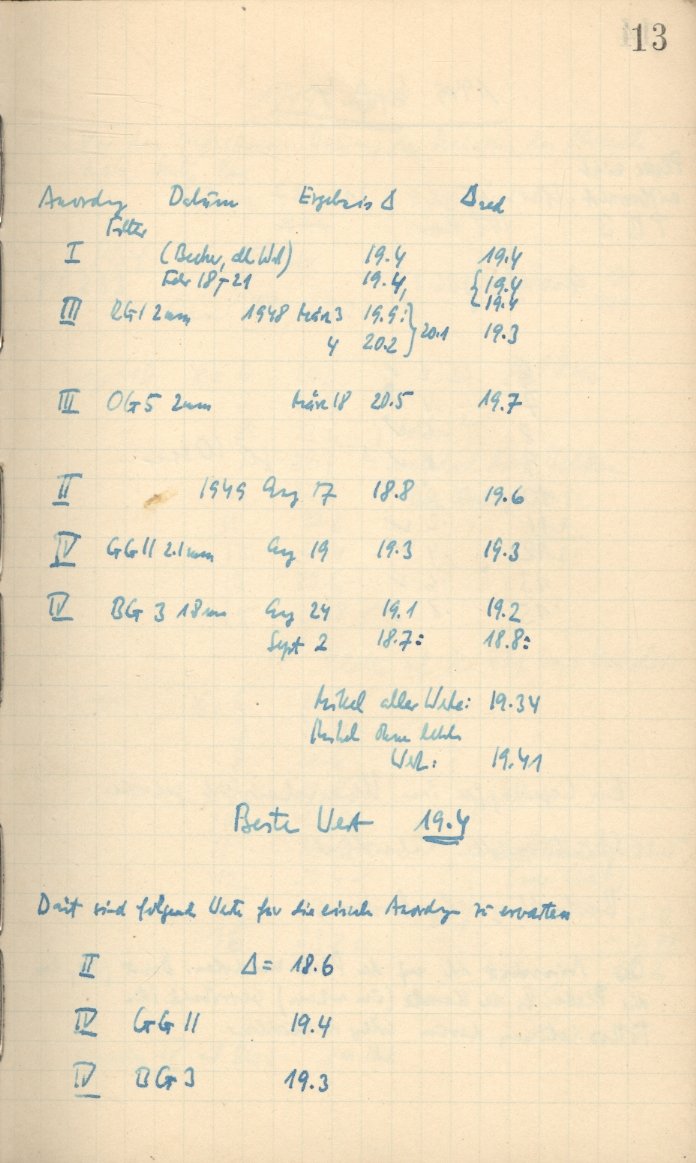 13
Anordng Datum Ergebnis Δ Δred
Filter
I (Becher, alle Wel) 19.4 19.4
Febr 18-21 19.4, { 19.4
19.4
III RG1 2mm 1948 März 3 19.9: } 20.1 19.3
4 20.2
III OG5 2mm März 18 20.5 19.7
II 1949 Aug 17 18.8 19.6
IV GG11 2.1mm Aug 19 19.3 19.3
IV BG 3 18mm Aug 24 19.1 19.2
Sept 2 18.7: 18.8:
Mittel aller Werte: 19.34
Mittel ohne letzten
Wert: 19.41
Beste Wert 19.4
Damit sind folgende Werte für die einzeln Anordng zu erwarten
II Δ = 18.6
IV GG11 19.4
IV BG3 19.3